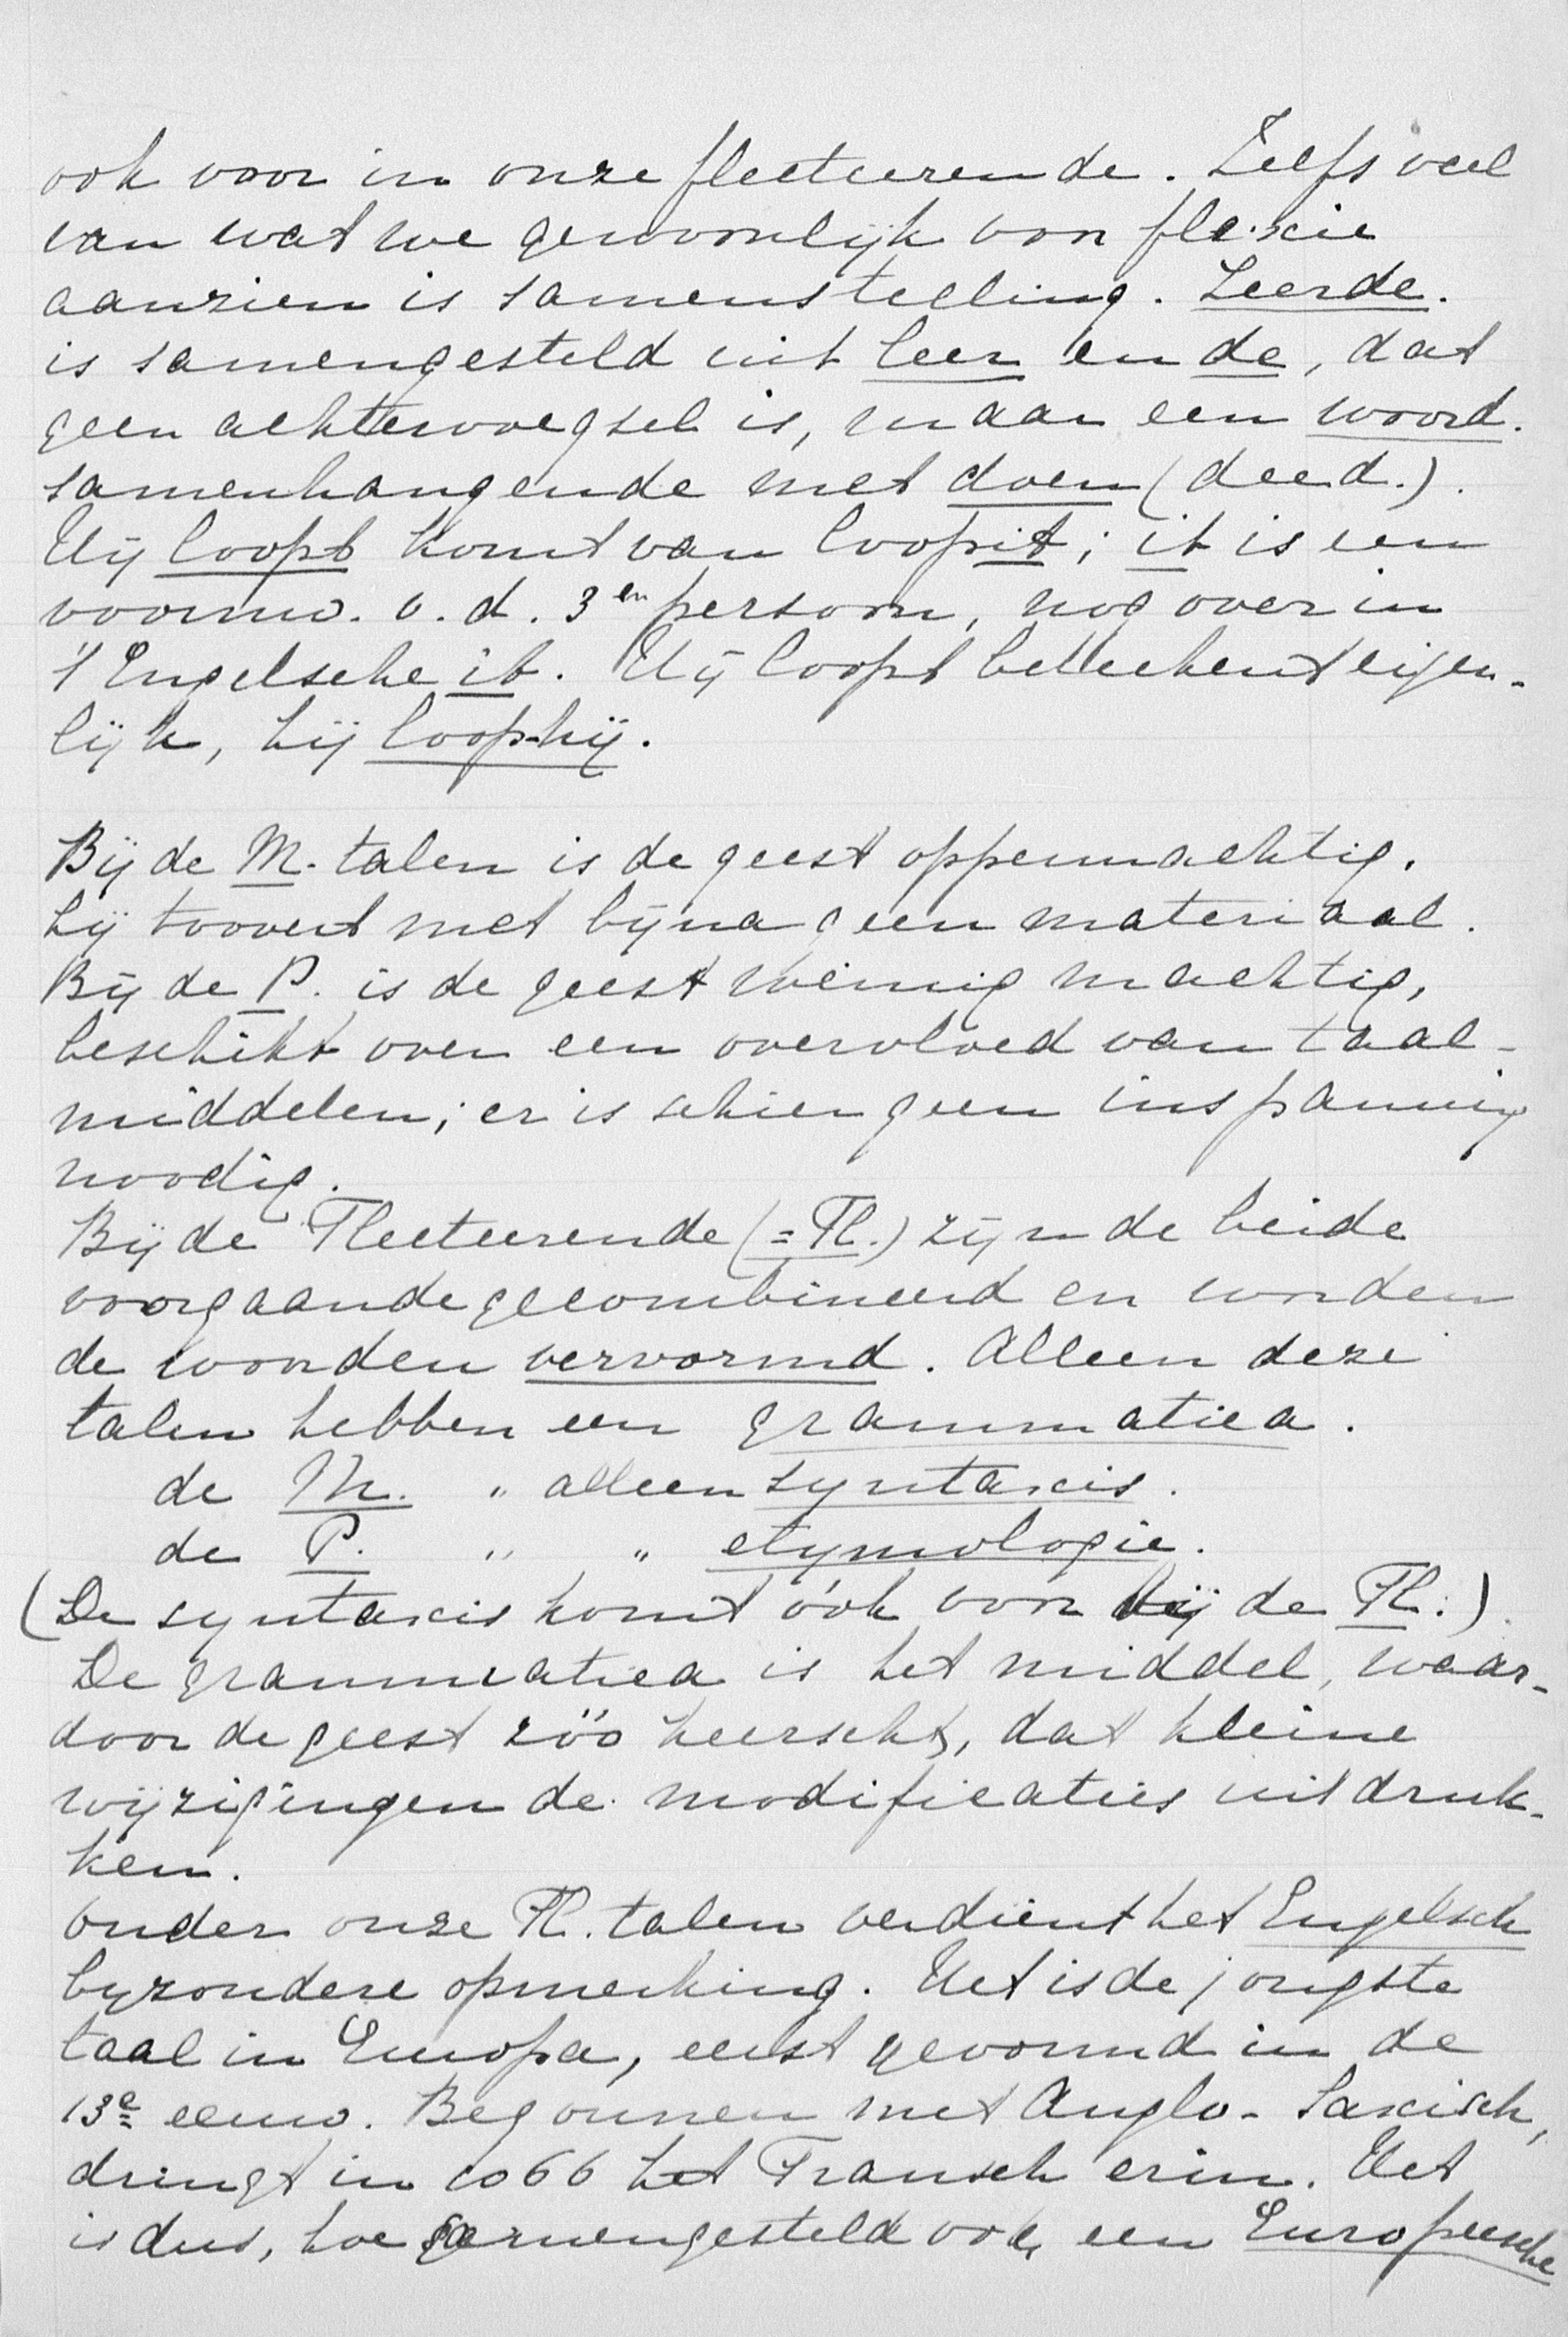 ook voor in onze flecteerende. Zelfs veel
van wat we gewoonlijk voor flexie
aanzien is samenstelling. Leerde.
is samengesteld uit leer en de, dat
geen achtervoegsel is, maar een woord.
samenhangende met doen (deed.).
Hij loopt komt van loopit; it is een
voornw. v. d. 3en persoon, nog over in
't Engelsche it. Hij loopt beteekent eigen-
lijk, hij loop-hij.
Bij de M. talen is de geest oppermachtig.
hij toovert met bijna geen materiaal.
Bij de P. is de geest weinig machtig,
beschikt over een overvloed van taal-
middelen; er is schier geen inspanning
noodig.
Bij de Flecteerende (=Fl.) zijn de beide
voorgaande gecombineerd en worden
de woorden vervormd. Alleen deze
talen hebben een grammatica.
de M. " alleen syntaxis.
de P. " " etymologie.
(De syntaxis komt óok voor bij de Fl.)
De grammatica is het middel, waar-
door de geest zóó heerscht, dat kleine
wijzigingen de modificaties uitdruk-
ken.
Onder onze Fl. talen verdient het Engelsch
byzondere opmerking. Het is de jongste
taal in Europa, eerst gevormd in de
13e eeuw. Begonnen met Anglo-Saxisch,
dringt in 1066 het Fransch erin. Het
is dus, hoe samengesteld ook, een Europeesche